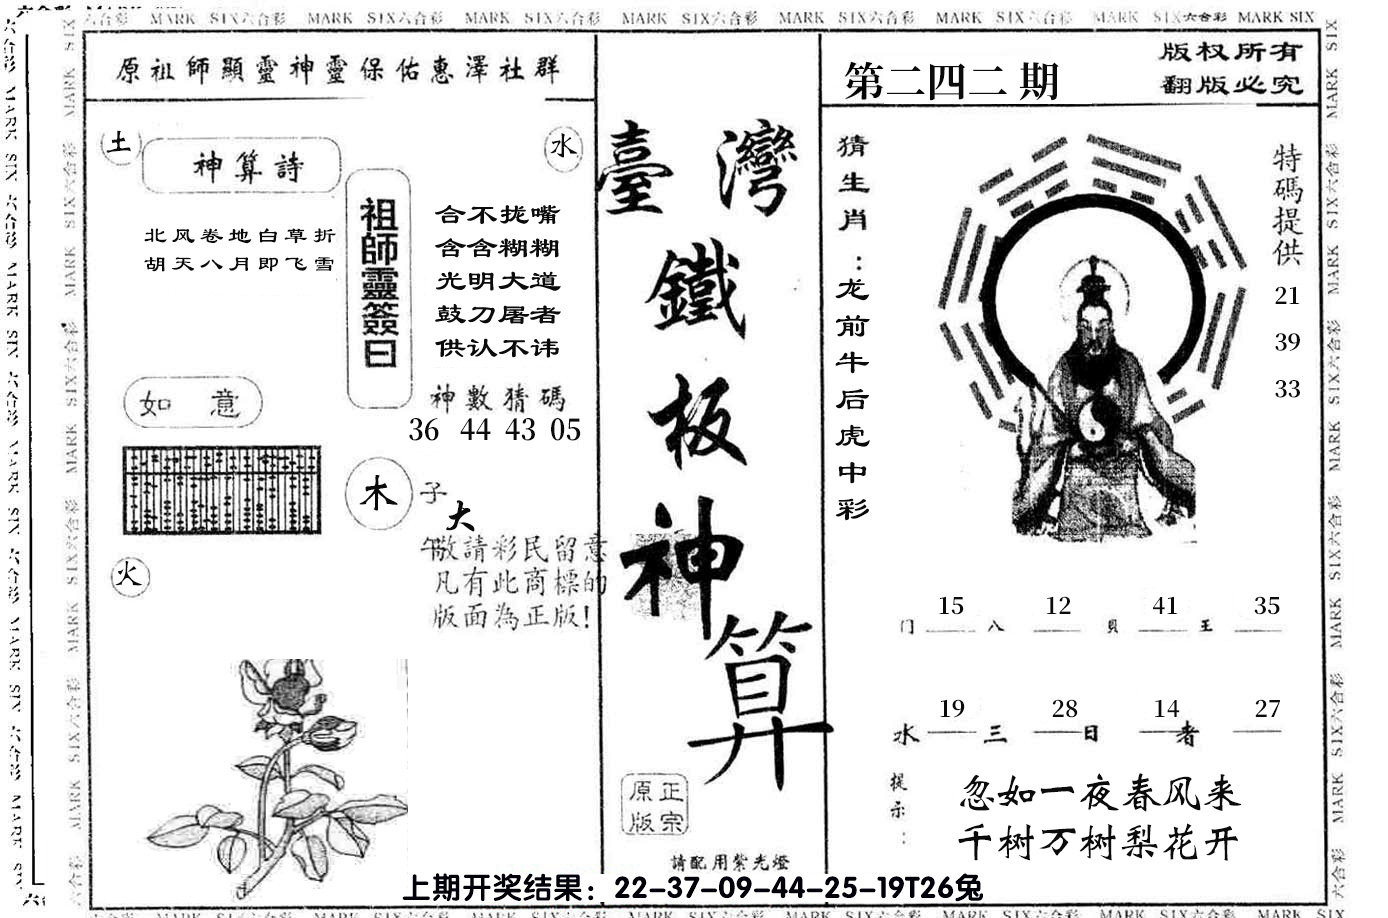 MARK SIX六合彩 MARK SIX六合彩 MARK SIX六合彩 MARK SIX六合彩 MARK SIX六合彩 MARK SIX六合彩 MARK SIX六合彩 MARK SIX
原祖師顯靈神靈保佑惠澤社群
第二四二期
版权所有
翻版必究
土
神算詩
水
北风卷地白草折
胡天八月即飞雪
祖師靈簽曰
合不拢嘴
含含糊糊
光明大道
鼓刀屠者
供认不讳
神數猜碼
36 44 43 05
如 意
木
子
大
午
敬請彩民留意
凡有此商標的
版面為正版!
火
臺灣
鐵
板
神
算
正宗
原版
請配用紫光燈
猜生肖:龙前牛后虎中彩
特碼提供
21
39
33
15 12 41 35
门 八 貝 王
19 28 14 27
水 三 日 者
提示:
忽如一夜春风来
千树万树梨花开
上期开奖结果：22-37-09-44-25-19T26兔